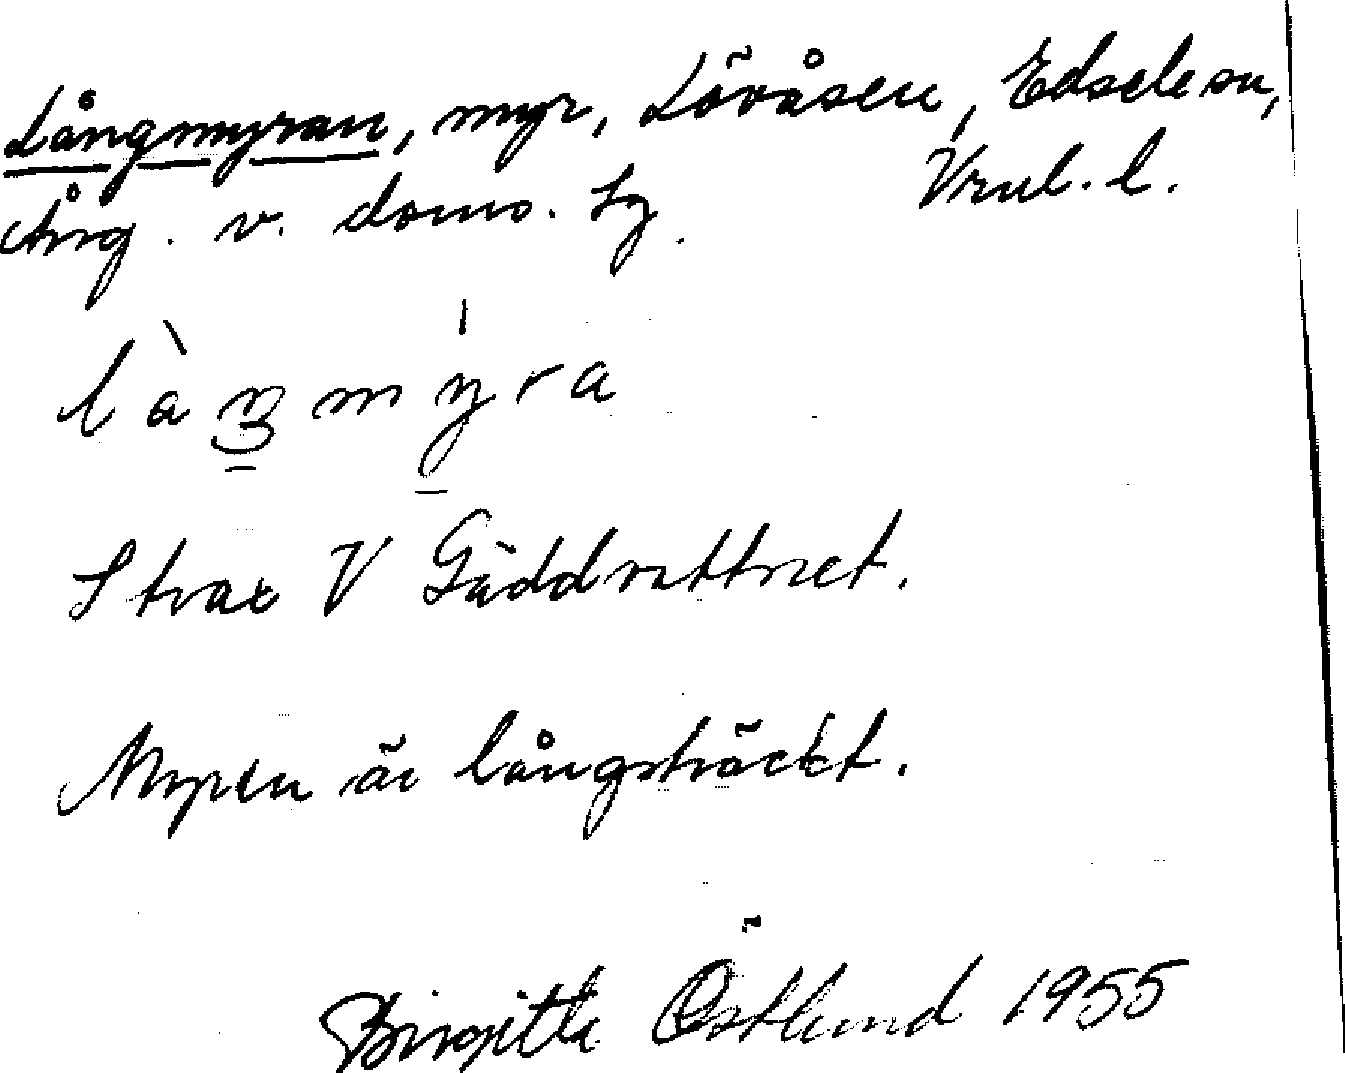 Långmyran, myr, Lövåsen, Edsele sn,
Ång. v. doms. lg. Vrnl. l.
làŋmyra
Strax V Gäddvattnet.
Myren är långsträckt.
Birgitta Östlund 1955